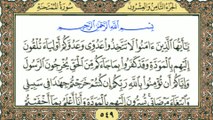 الجزء الثامن والعشرون سورة الممتحنة
بسم الله الرحمن الرحيم
يا أيها الذين ءامنوا لا تتخذوا عدوي وعدوكم أولياء تلقون
إليهم بالمودة وقد كفروا بما جاءكم من الحق يخرجون الرسول
وإياكم أن تؤمنوا بالله ربكم إن كنتم خرجتم جهادا في سبيلي
٥٤٩